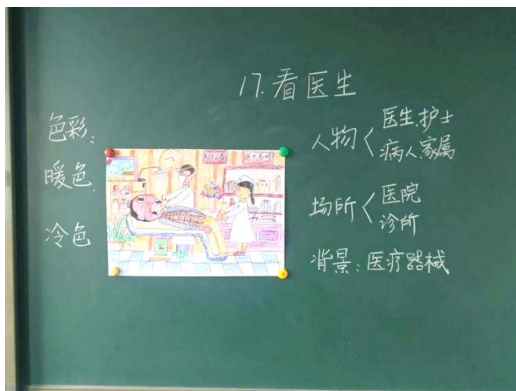 17.看医生
色彩:
暖色
冷色
人物
医生.护士
病人家属
场所
医院
诊所
背景:医疗器械